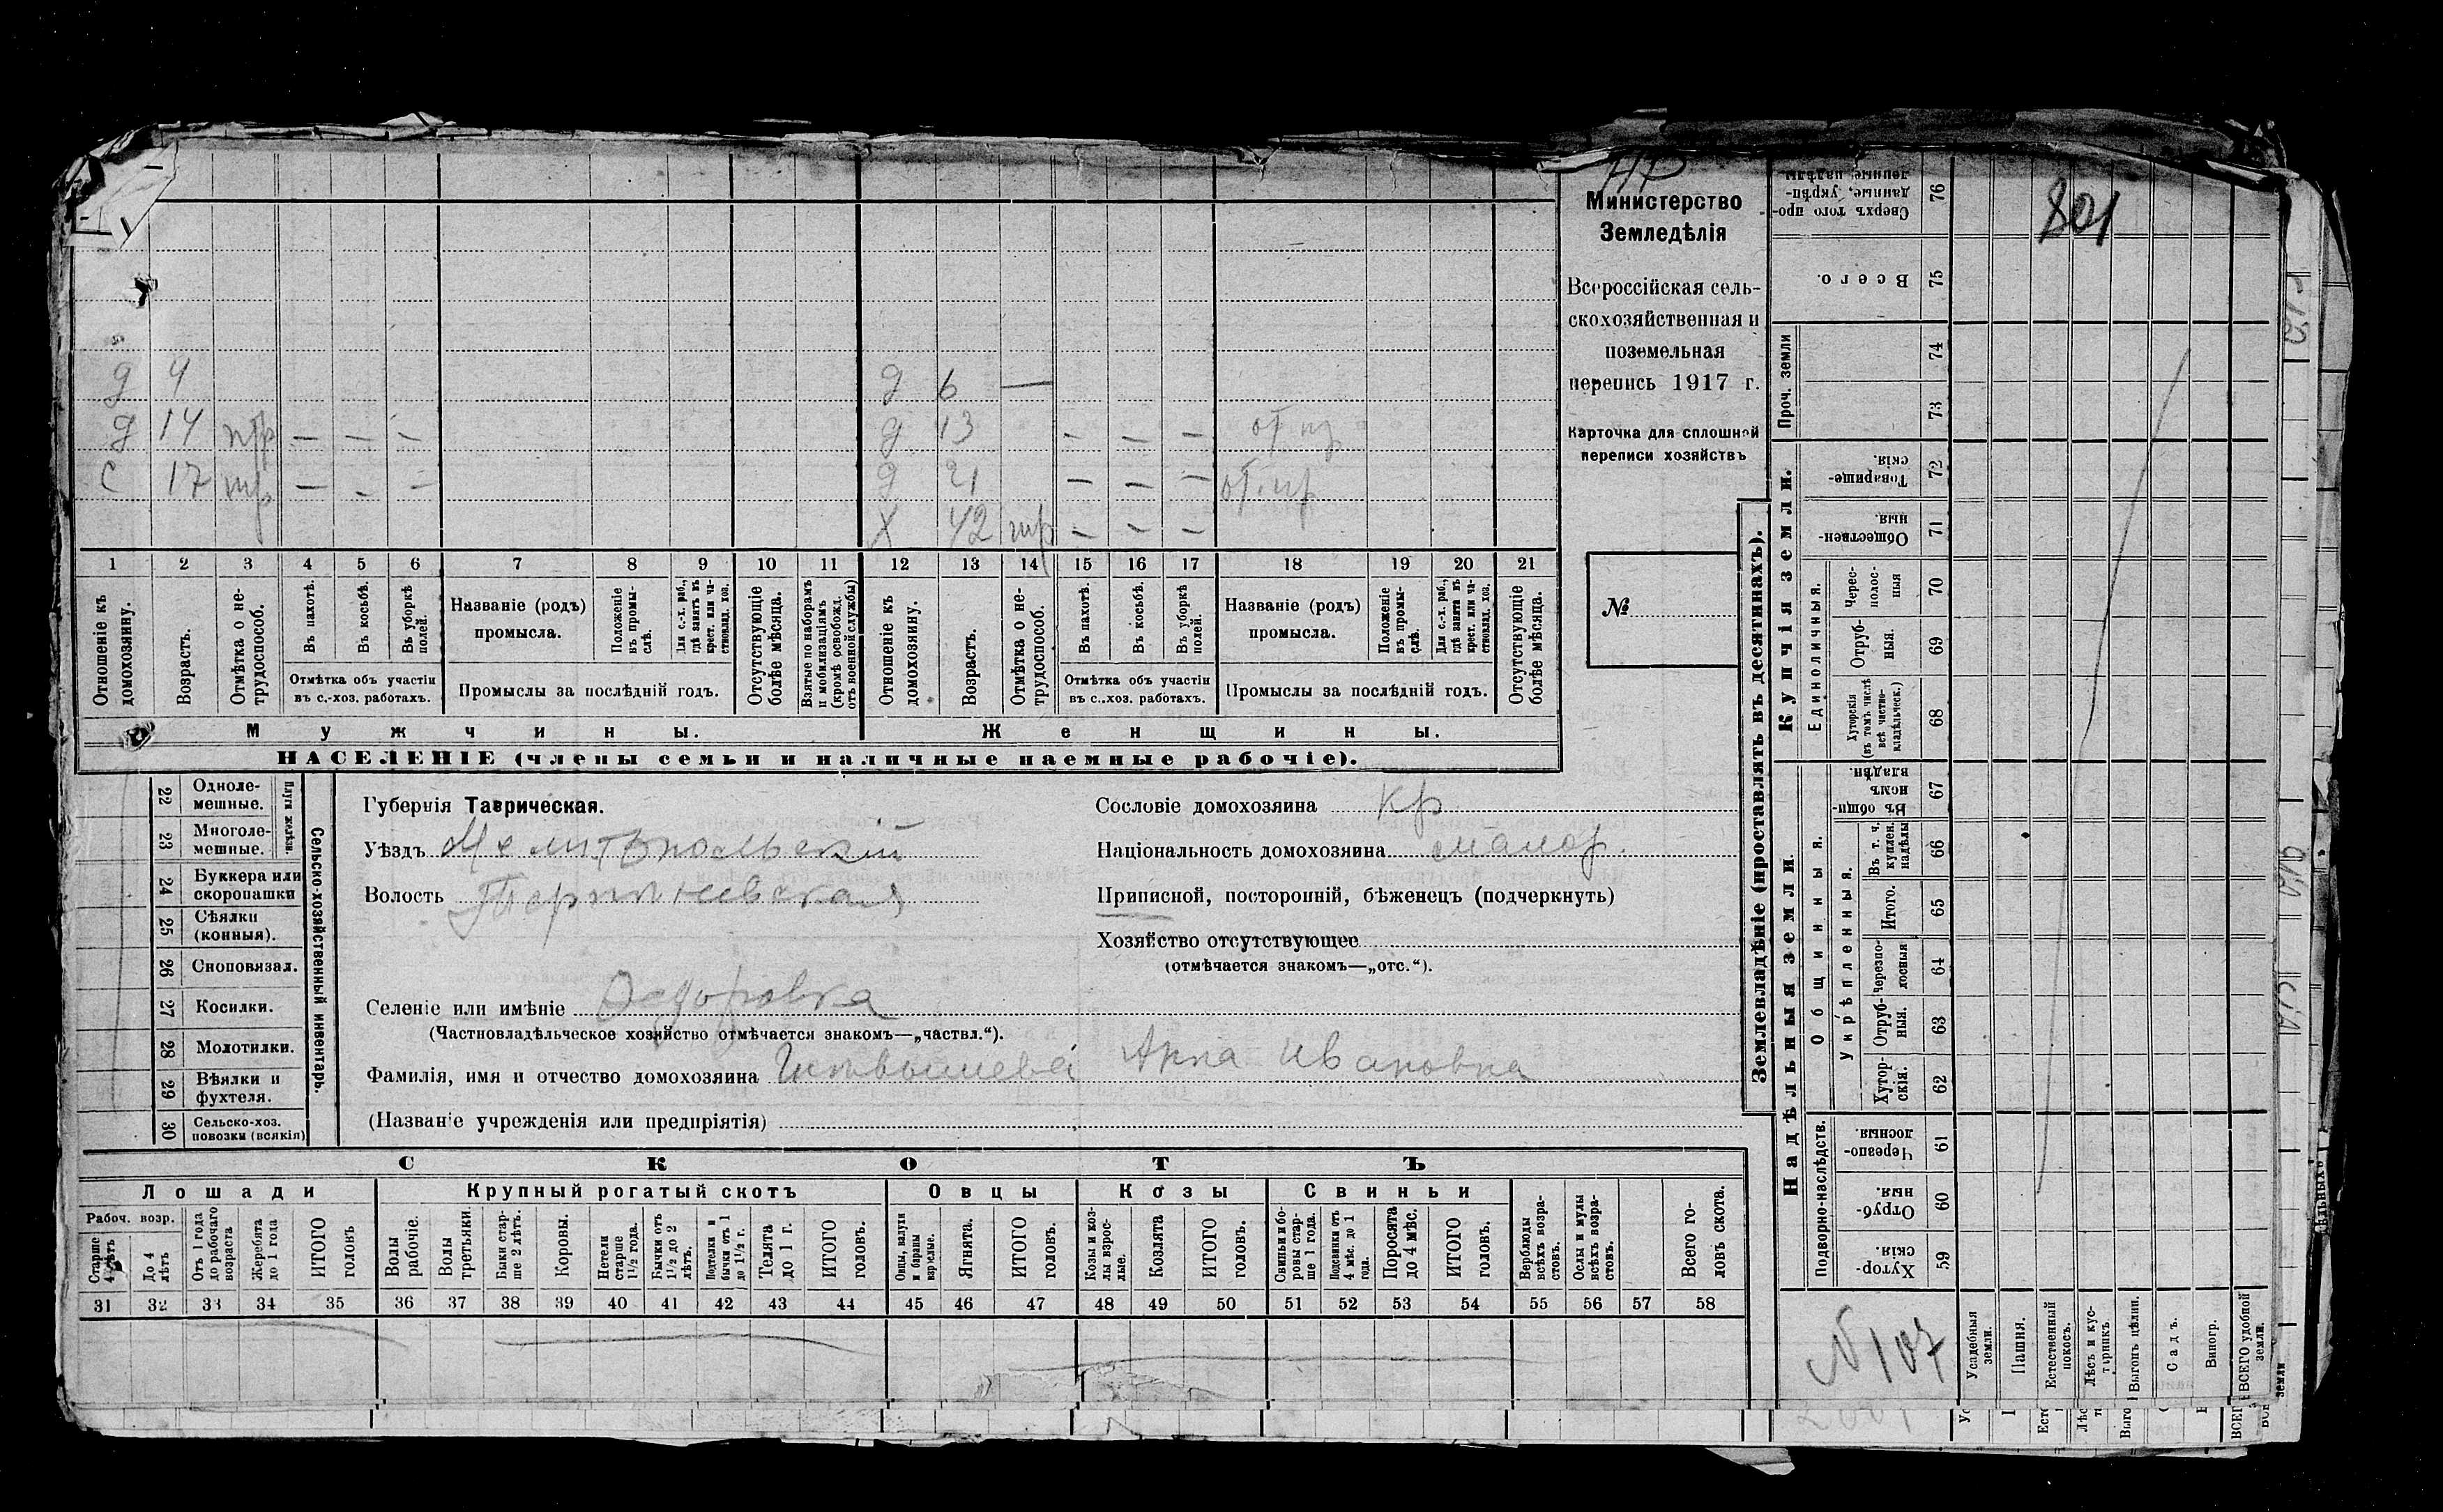 801
Министерство
Земледѣлія
Всероссійская сель-
скохозяйственная и
поземельная
перепись 1917 г.
Карточка для сплошной
переписи хозяйствъ
№
д 4 д 6 —
д 14 — — — д 13 — — —
с 17 — — — д 21 — — —
х 42 — — —
1 2 3 4 5 6 7 8 9 10 11 12 13 14 15 16 17 18 19 20 21
Отношеніе къ домохозяину.
Возрастъ.
Отмѣтка о не-трудоспособ.
Въ пахотѣ.
Въ косьбѣ.
Въ уборкѣ полей.
Отмѣтка объ участіи въ с.-хоз. работахъ.
Названіе (родъ) промысла.
Положеніе въ промы-слѣ.
Для с.-х. раб., гдѣ занятъ въ крест. или ча-стновлад. хоз.
Промыслы за послѣдній годъ.
Отсутствующіе болѣе мѣсяца.
Взятые по наборамъ и мобилизаціямъ (кромѣ освобожд. отъ военной службы)
Отношеніе къ домохозяину.
Возрастъ.
Отмѣтка о не-трудоспособ.
Въ пахотѣ.
Въ косьбѣ.
Въ уборкѣ полей.
Отмѣтка объ участіи въ с.-хоз. работахъ.
Названіе (родъ) промысла.
Положеніе въ промы-слѣ.
Для с.-х. раб., гдѣ занята въ крест. или ча-стновлад. хоз.
Промыслы за послѣдній годъ.
Отсутствующіе болѣе мѣсяца.
Мужчины. Женщины.
НАСЕЛЕНІЕ (члены семьи и наличные наемные рабочіе).
Сельско-хозяйственный инвентарь.
Плуги желѣзн.
22 Одноле-мешные.
23 Многоле-мешные.
24 Буккера или скоропашки
25 Сѣялки (конныя).
26 Сноповязал.
27 Косилки.
28 Молотилки.
29 Вѣялки и фухтеля.
30 Сельско-хоз. повозки (всякія)
Губернія Таврическая.
Уѣздъ Мелитопольскій
Волость Терпѣньевская
Селеніе или имѣніе Федоровка
(Частновладѣльческое хозяйство отмѣчается знакомъ—„частвл.“).
Фамилія, имя и отчество домохозяина Анна Ивановна
(Названіе учрежденія или предпріятія)
Сословіе домохозяина кр
Національность домохозяина малор.
Приписной, посторонній, бѣженецъ (подчеркнуть)
Хозяйство отсутствующее
(отмѣчается знакомъ—„отс.“).
СКОТЪ
Лошади Крупный рогатый скотъ Овцы Козы Свиньи
Рабоч. возр.
Старше 4 лѣтъ
До 4 лѣтъ
Отъ 1 года до рабочаго возраста
Жеребята до 1 года
ИТОГО головъ
Волы рабочіе.
Волы третьяки.
Быки стар-ше 2 лѣтъ.
Коровы.
Нетели старше 1½ года.
Бычки отъ 1½ до 2 лѣтъ.
Подтелки и бычки отъ 1 до 1½ г.
Телята до 1 г.
ИТОГО головъ.
Овцы, валухи и бараны взрослые.
Ягнята.
ИТОГО головъ.
Козы и коз-лы взрос-лые.
Козлята
ИТОГО головъ.
Свиньи и бо-ровы стар-ше 1 года.
Подсвинки отъ 4 мѣс. до 1 года.
Поросята до 4 мѣс.
ИТОГО головъ.
Верблюды всѣхъ возра-стовъ.
Ослы и мулы всѣхъ возра-стовъ.
Всего го-ловъ скота.
31 32 33 34 35 36 37 38 39 40 41 42 43 44 45 46 47 48 49 50 51 52 53 54 55 56 57 58
Землевладѣніе (проставлять въ десятинахъ).
Надѣльныя земли. Купчія земли. Проч. земли
Подворно-наслѣдств. Общинныя. Укрѣпленныя. Единоличныя.
Хутор-скія. 59
Отруб-ныя. 60
Черезпо-лосныя. 61
Хутор-скія. 62
Отруб-ныя. 63
Черезпо-лосныя 64
Итого. 65
Въ т. ч. куплен. надѣлы 66
Въ общи-номъ владѣн. 67
Хуторскія (въ томъ числѣ всѣ частно-владѣльческ.) 68
Отруб-ныя. 69
Черес-полос-ныя 70
Обществен-ныя. 71
Товарище-скія. 72
73
74
Всего. 75
Сверхъ того про-данные, укрѣп-ленные надѣлы 76
N 107
Усадебныя земли.
Пашня.
Естественный покосъ.
Лѣсъ и кус-тарникъ.
Выгонъ цѣлин.
Садъ.
Виногр.
ВСЕГО удобной земли.